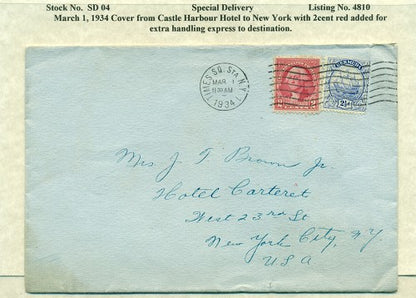 Stock No. SD 04 Special Delivery Listing No. 4810
March 1, 1934 Cover from Castle Harbour Hotel to New York with 2cent red added for
extra handling express to destination.
TIMES SQ. STA. N.Y.
MAR 1
11 00 AM
1934
2 2
BERMUDA
2½
Mrs J T Brown Jr.
Hotel Carteret
West 23rd St
New York City, N.Y.
USA